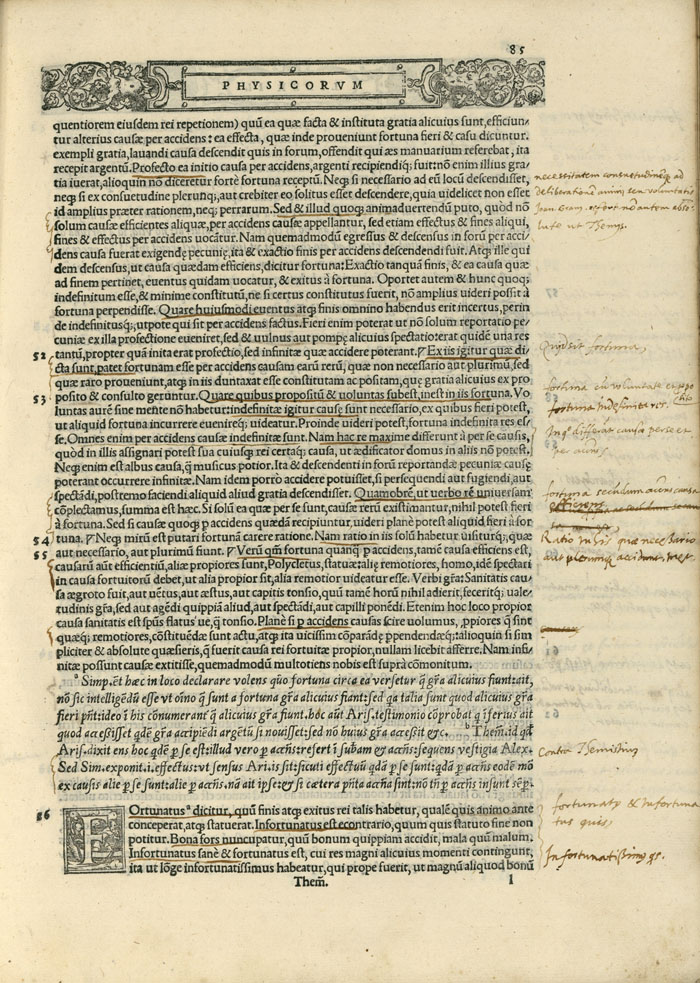 85
PHYSICORVM
quentiorem eiusdem rei repetionem) quũ ea quæ facta & instituta gratia alicuius sunt, efficiun⸗
tur alterius causæ per accidens: ea effecta, quæ inde proueniunt fortuna fieri & casu dicuntur.
exempli gratia, lauandi causa descendit quis in forum, offendit qui æs manuarium referebat, ita
recepit argentũ. Profecto ea initio causa per accidens, argenti recipiendiq; fuit: nõ enim illius gra⸗
tia iuerat, alioquin nõ diceretur fortè fortuna receptũ. Neq; si necessario ad eũ locũ descendisset,
neq; si ex consuetudine plerunq;, aut crebriter eo solitus esset descendere, quia uidelicet non esset
id amplius præter rationem, neq; per rarum. Sed & illud quoq; animaduertendũ puto, quòd nõ
solum causæ efficientes aliquæ, per accidens causæ appellantur, sed etiam effectus & fines aliqui,
fines & effectus per accidens uocãtur. Nam quemadmodũ egressus & descensus in forũ per acci⸗
dens causa fuerat exigendę pecunię, ita & exactio finis per accidens descendendi fuit. Atq; ille qui
dem descensus, ut causa quædam efficiens, dicitur fortuna: Exactio tanquã finis, & ea causa quæ
ad finem pertinet, euentus quidam uocatur, & exitus à fortuna. Oportet autem & hunc quoq;
indefinitum esse, & minime constitutũ, ne si certus constitutus fuerit, nõ amplius uideri possit à
fortuna perpendisse. Quare huiusmodi euentus atq; finis omnino habendus erit incertus, perin
de indefinitusq;, utpote qui sit per accidens factus. Fieri enim poterat ut nõ solum reportatio pe⸗
cuniæ ex illa profectione eueniret, sed & uulnus aut pompæ alicuius spectatio: erat quidẽ una res
52 tantũ, propter quã inita erat profectio, sed infinitæ quæ accidere poterant. Ex iis igitur quæ di⸗
cta sunt, patet fortunam esse per accidens causam earũ rerũ, quæ non necessario aut plurimũ, sed
quæ raro proueniunt, atq; in iis duntaxat esse constitutam ac positam, quę gratia alicuius ex pro
53 posito & consulto geruntur. Quare quibus propositũ & uoluntas subest, inest in iis fortuna. Vo
luntas aurẽ sine mente nõ habetur: indefinitæ igitur causę sunt necessario, ex quibus fieri potest,
ut aliquid fortuna incurrere euenireq; uideatur. Proinde uideri potest, fortuna indefinita res es⸗
se. Omnes enim per accidens causæ indefinitæ sunt. Nam hac re maxime differunt à per se causis,
quòd in illis assignari potest sua cuiusq; rei certaq; causa, ut ædificator domus in aliis nõ potest.
Neq; enim est albus causa, q̃ musicus potior. Ita & descendenti in forũ reportandæ pecuniæ causę
poterant occurrere infinitæ. Nam idem porrò accidere potuisset, si persequendi aut fugiendi, aut
spectãdi, postremo faciendi aliquid aliud gratia descendisset. Quamobrẽ, ut uerbo rẽ uniuersam
cõplectamus, summa est hæc. Si solũ ea quæ per se sunt, causæ rerũ existimantur, nihil potest fieri
à fortuna. Sed si causæ quoq; p accidens quædã recipiuntur, uideri planè potest aliquid fieri à for
54 tuna. Neq; mirũ est putari fortunã carere ratione. Nam ratio in iis solũ habetur uisiturq;, quæ
55 aut necessario, aut plurimũ fiunt. Verũ q̃m fortuna quanq̃ p accidens, tamẽ causa efficiens est,
causarũ aũt efficientiũ, aliæ propiores sunt, Polycletus, statuæ: alię remotiores, homo, idẽ spectari
in causa fortuitorũ debet, ut alia propior sit, alia remotior uideatur esse. Verbi gr̃a: Sanitatis cau⸗
sa ægroto fuit, aut uẽtus, aut æstus, aut capitis tonsio, quũ tamẽ horũ nihil adierit, feceritq; uale⸗
tudinis gr̃a, sed aut agẽdi quippiã aliud, aut spectãdi, aut capilli ponẽdi. Etenim hoc loco propior
causa sanitatis est spũs status ue, q̃ tonsio. Planè si p accidens causas scire uolumus, ppiores q̃ sint
quæq; remotiores, cõstituẽdæ sunt actu, atq; ita uicissim cõparãdę ppendendæq;: alioquin si sim
pliciter & absolute quæsieris, q̃ fuerit causa rei fortuitæ propior, nullam licebit afferre. Nam infi⸗
nitæ possunt causæ extitisse, quemadmodũ multotiens nobis est suprà cõmonitum.
ᵃ Simp. et hæc in loco declarare volens quõ fortuna circa ea versetur q̃ gr̃a alicuius fiunt: ait,
nõ sic intelligẽdũ esse vt oĩno q̃ sunt a fortuna gr̃a alicuius fiant: sed qa talia sunt quod alicuius gr̃a
fieri pñt: ideo ĩ his cõnumerant̃ q̃ alicuius gr̃a fiunt. hoc aũt Aris. testimonio cõprobat q̃ ĩferius ait
quod accessisset qdẽ gr̃a accipiẽdi argẽtũ si nouisset: sed nõ huius gr̃a accessit &c. ᵇ Them. id qđ
Aris. dixit ens hoc qdẽ p se est: illud vero p accñs: refert ĩ subam & accñs: sequens vestigia Alex.
Sed Sim. exponit .i. effectus: vt sensus Ari. is sit: sicuti effectuũ qdã p se sunt: qdã p accñs eodẽ mõ
ex causis alie p se sunt: alie p accñs. nã ait ipse: & si cætera pñta accña sint: nõ tñ p accñs insunt sẽp.
56 FOrtunatus ᵃ dicitur, quũ finis atq; exitus rei talis habetur, qualẽ quis animo ante
conceperat, atq; statuerat. Infortunatus est econtrario, quum quis statuto fine non
potitur. Bona fors nuncupatur, quũ bonum quippiam accidit, mala quũ malum.
Infortunatus sanè & fortunatus est, cui res magni alicuius momenti contingunt,
ita ut lõge infortunatissimus habeatur, qui prope fuerit, ut magnũ aliquod bonũ
Them̃. l
necessitatem consuetudinẽq; ad
deliberationẽ animi, seu voluntatis
Quid sit fortuna,
fortuna indefinita res.
Inq̃ differãt causa per se et
per accñs.
fortuna secundum accñs causa
Ratio in his quæ necessario
aut plerunq; accidunt, inest.
Contra Themistium
fortunatꝰ & infortuna
tus quis,
Infortunatissimꝰ qs.